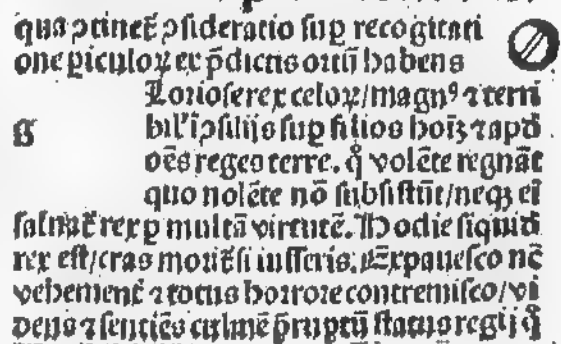 qua ꝯtinet᷑ ꝯſideratio ſuꝑ recogitati
one ꝑiculoꝝ ex p̄dictis ortū habens
Lorioſe rex celoꝝ/magnꝰ ⁊ terri
g bil̓ i ꝯſilijs ſuꝑ filios hoīꝫ ⁊ apd̓
oēs reges terre. q̊ volēte regnāt
quo nolēte nō ſubſiſtūt/neqꝫ eī
ſaluat᷑ rex ꝑ multā virtutē. Hodie ſiquid̓
rex eſt/cras moriet᷑ ſi iuſſeris. Expaueſco nc̄
vehement᷑ ⁊ totus horrore contremiſco/vi
dens ⁊ ſentiēs culmē p̄ruptū ſtatus regij q̊